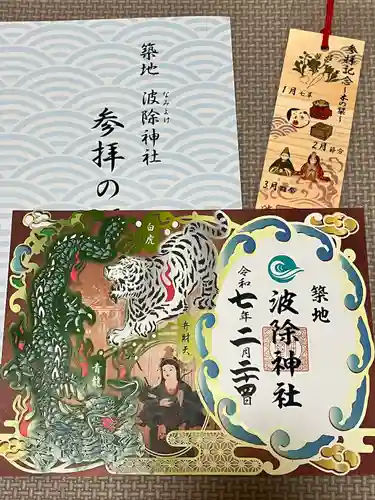 築地 波除神社
なみよけ
参拝の
参拝記念
〜木の栞〜
1月 七草
2月 節分
3月 雛祭
白虎
青龍
弁財天
築地
波除神社
令和七年二月二十四日